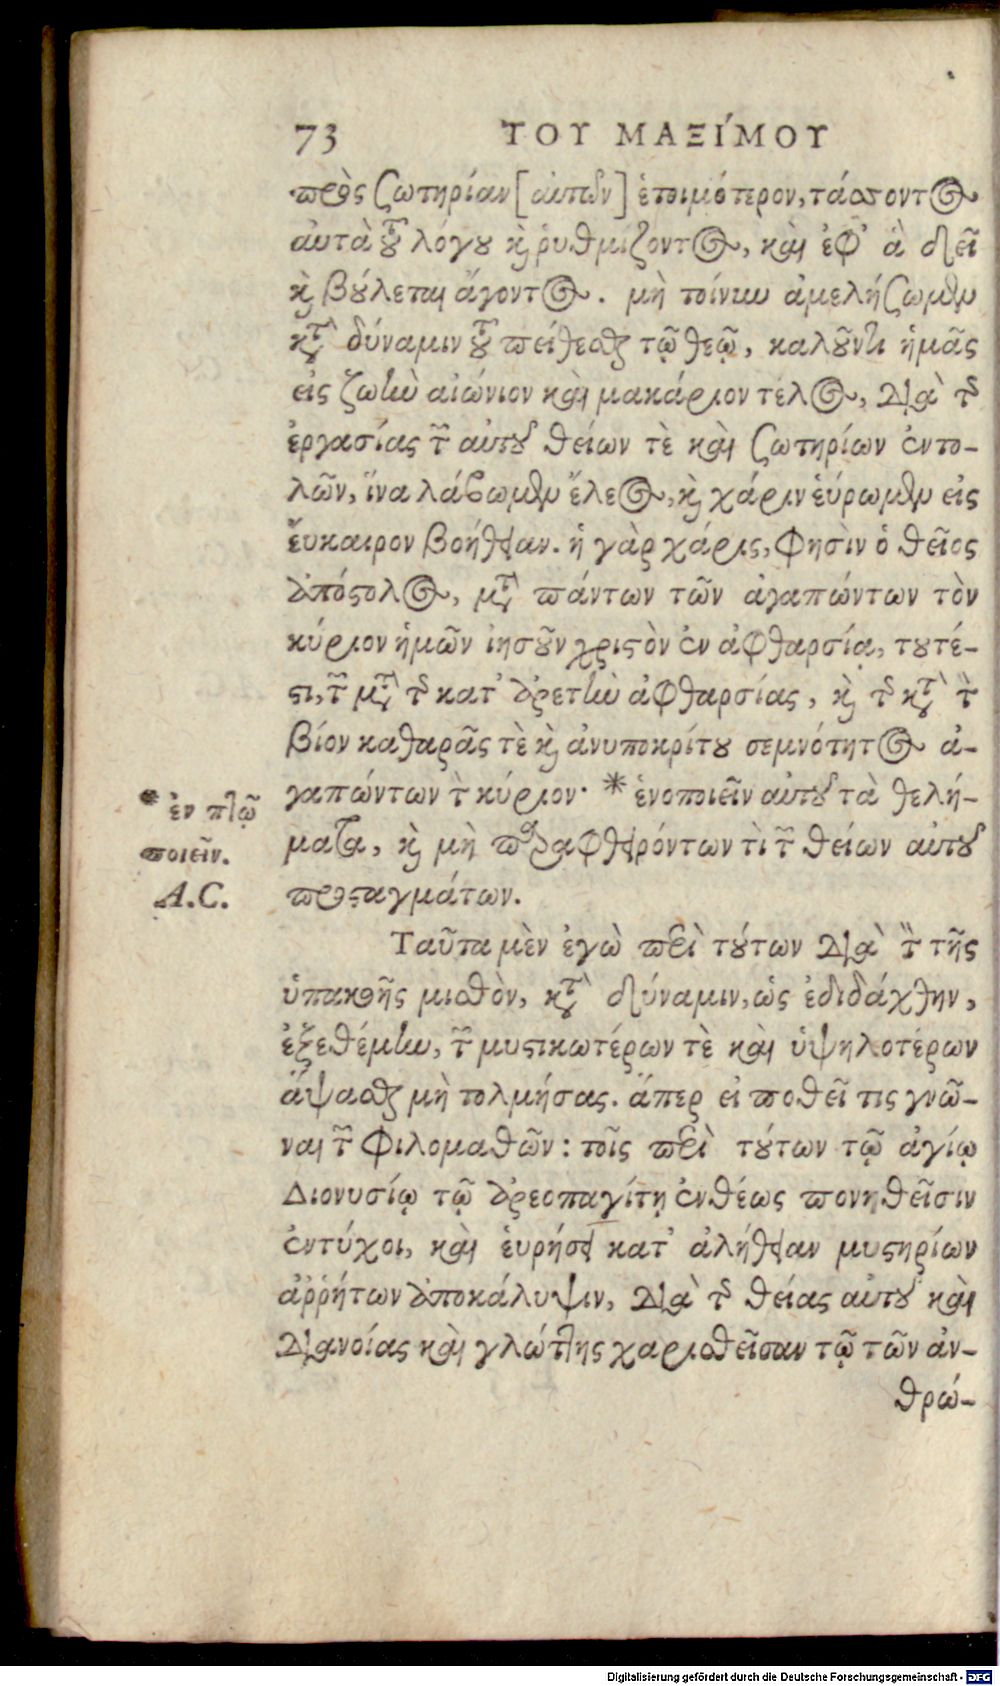 73 ΤΟΥ ΜΑΞΊΜΟΥ
πρὸς σωτηρίαν [αὐτῶν] ἑτοιμότερον, τάσσοντος
αὐτὰ τοῦ λόγου καὶ ῥυθμίζοντος, καὶ ἐφ᾽ ἃ δεῖ
καὶ βούλεται ἄγοντος. μὴ τοίνυν ἀμελήσωμεν
κατὰ δύναμιν τοῦ πείθεσθαι τῷ θεῷ, καλοῦντι ἡμᾶς
εἰς ζωὴν αἰώνιον καὶ μακάριον τέλος, διὰ τῆς
ἐργασίας τῶν αὐτοῦ θείων τὲ καὶ σωτηρίων ἐντο-
λῶν, ἵνα λάβωμεν ἔλεος, καὶ χάριν εὕρωμεν εἰς
ἔυκαιρον βοήθειαν. ἡ γὰρ χάρις, φησὶν ὁ θεῖος
ἀπόστολος, μετὰ πάντων τῶν ἀγαπώντων τὸν
κύριον ἡμῶν ἰησοῦν χριστὸν ἐν ἀφθαρσίᾳ, τουτέ-
στι, τῶν μετὰ τῆς κατ᾽ ἀρετὴν ἀφθαρσίας, καὶ τῆς κατὰ τὸν
βίον καθαρᾶς τὲ καὶ ἀνυποκρίτου σεμνότητος ἀ-
γαπώντων τὸν κύριον· * ἑνοποιεῖν αὐτοῦ τὰ θελή-
ματα, καὶ μὴ παραφθειρόντων τὶ τῶν θείων αὐτοῦ
προσταγμάτων.
* ἐν τῷ
ποιεῖν.
A.C.
Ταῦτα μὲν ἐγὼ περὶ τούτων διὰ τὸν τῆς
ὑπακοῆς μισθὸν, κατὰ δύναμιν, ὡς ἐδιδάχθην,
ἐξεθέμην, τῶν μυστικωτέρων τὲ καὶ ὑψηλοτέρων
ἅψασθαι μὴ τολμήσας. ἅπερ εἰ ποθεῖ τις γνῶ-
ναι τῶν φιλομαθῶν: τοῖς περὶ τούτων τῷ ἁγίῳ
Διονυσίῳ τῷ ἀρεοπαγίτῃ ἐνθέως πονηθεῖσιν
ἐντύχοι, καὶ ἑυρήσει κατ᾽ ἀλήθειαν μυστηρίων
ἀῤῥήτων ἀποκάλυψιν, διὰ τῆς θείας αὐτοῦ καὶ
διανοίας καὶ γλώττης χαρισθεῖσαν τῷ τῶν ἀν-
θρώ-
Digitalisierung gefördert durch die Deutsche Forschungsgemeinschaft - DFG